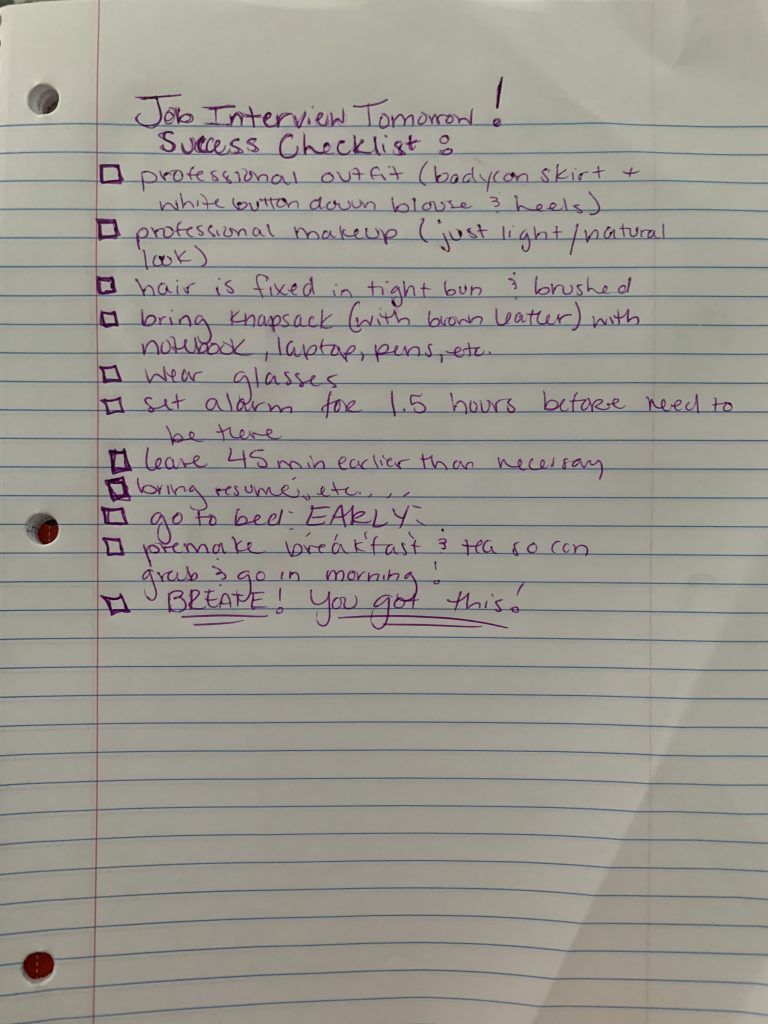 Job Interview Tomorrow!
Success Checklist:
professional outfit (bodycon skirt +
white button down blouse & heels)
professional makeup (just light/natural
look)
hair is fixed in tight bun & brushed
bring knapsack (with brown leather) with
notebook, laptop, pens, etc.
wear glasses
set alarm for 1.5 hours before need to
be there
leave 45 min earlier than necessary
bring resume, etc....
go to bed: EARLY:
premake breakfast & tea so can
grab & go in morning!
BREATHE! You got this!